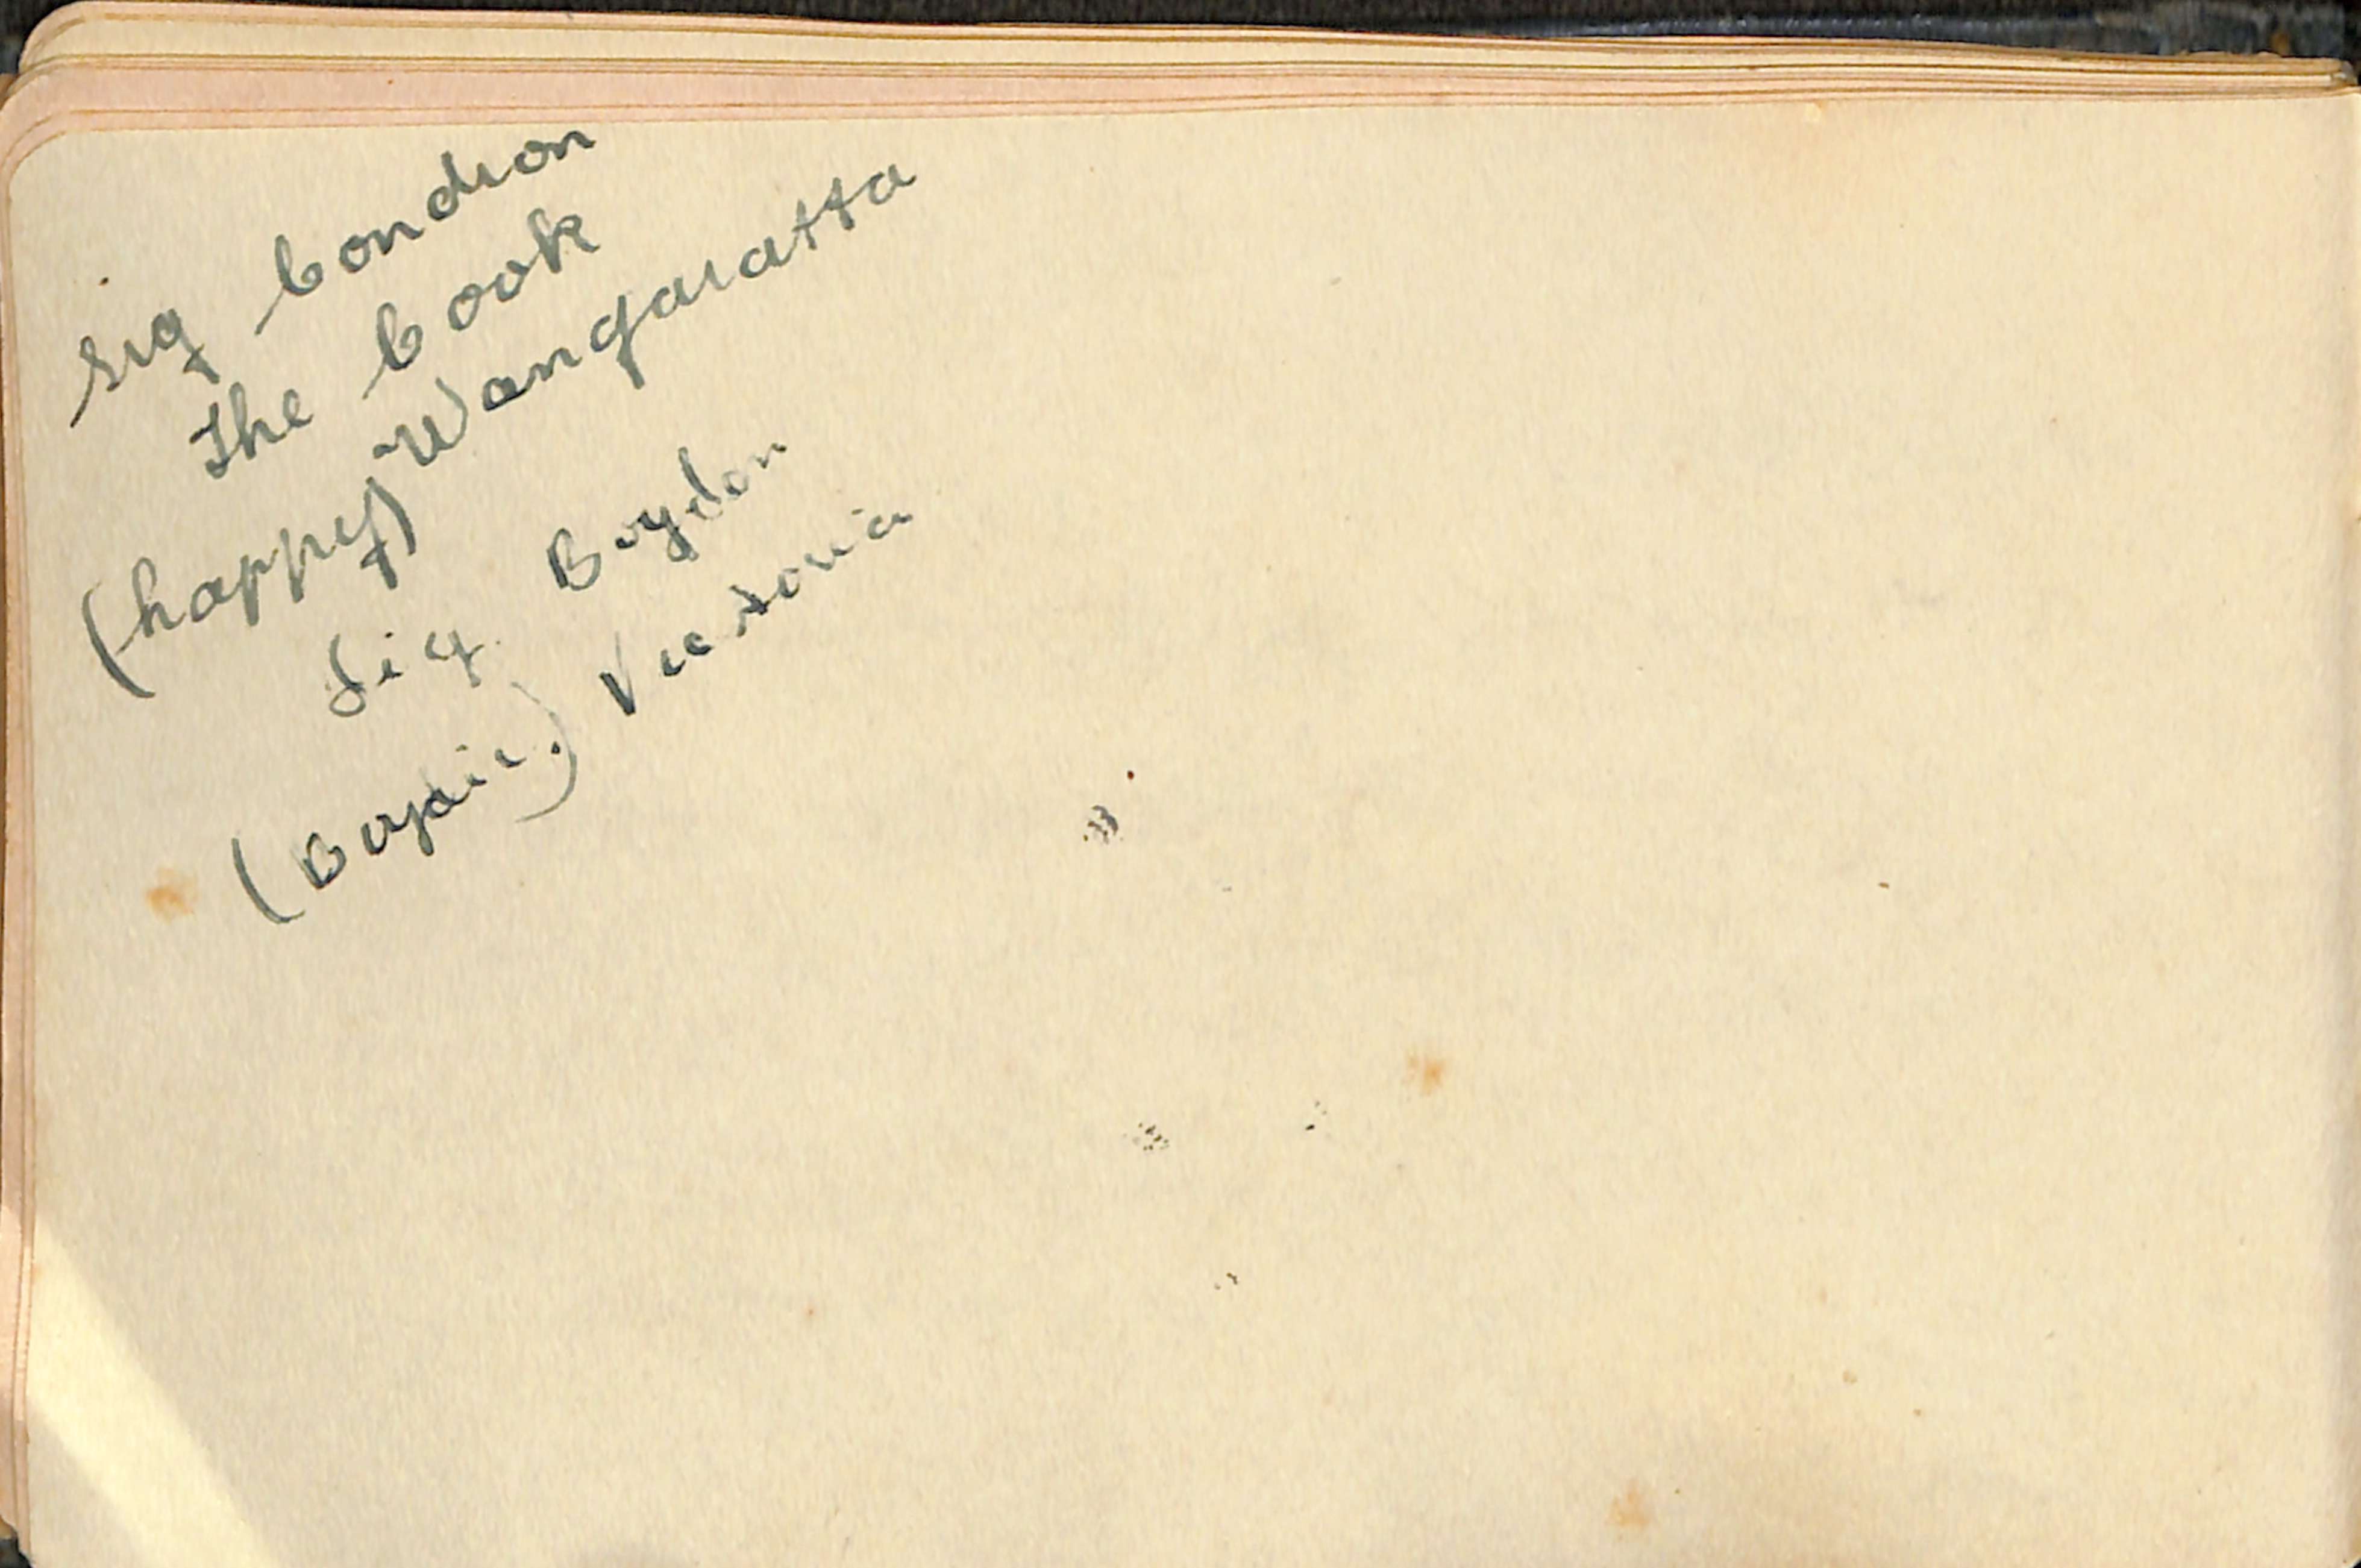 Sig Condron
The Cook
(happy) Wangaratta
Sig. Boydon
(Boydie.) Victoria